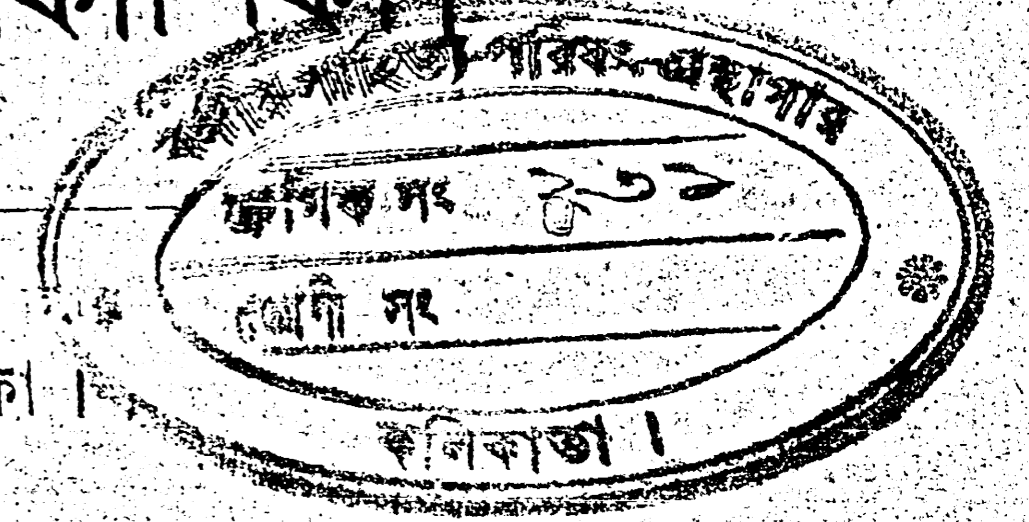 বঙ্গীয় সাহিত্য পরিষৎ গ্রন্থাগার
ক্রমিক সং
শ্রেণী সং
কলিকাতা ।